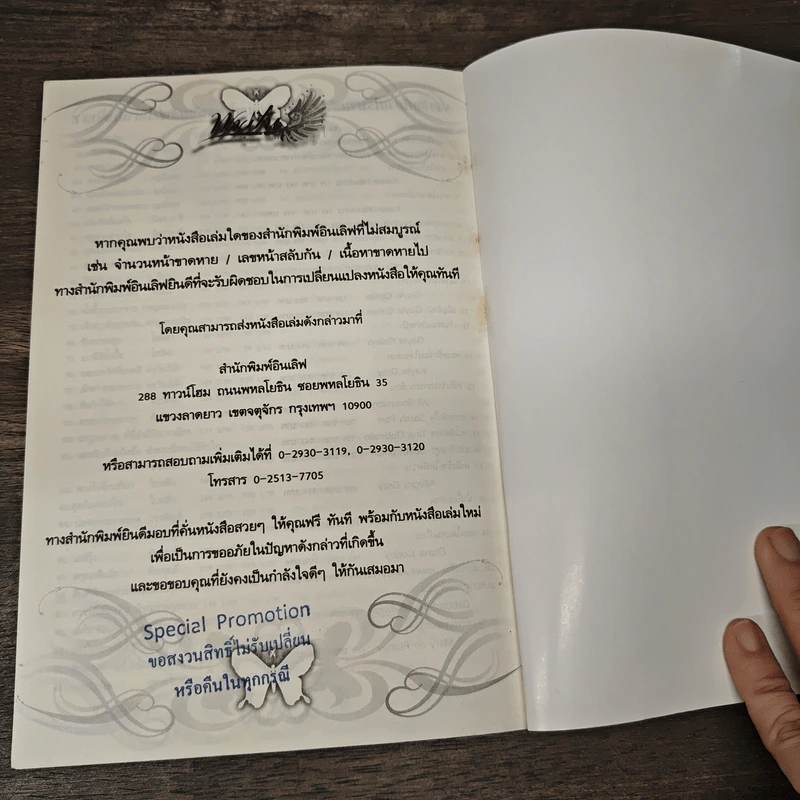 หากคุณพบว่าหนังสือเล่มใดของสำนักพิมพ์อินเลิฟที่ไม่สมบูรณ์
เช่น จำนวนหน้าขาดหาย / เลขหน้าสลับกัน / เนื้อหาขาดหายไป
ทางสำนักพิมพ์อินเลิฟยินดีที่จะรับผิดชอบในการเปลี่ยนแปลงหนังสือให้คุณทันที
โดยคุณสามารถส่งหนังสือเล่มดังกล่าวมาที่
สำนักพิมพ์อินเลิฟ
288 ทาวน์โฮม ถนนพหลโยธิน ซอยพหลโยธิน 35
แขวงลาดยาว เขตจตุจักร กรุงเทพฯ 10900
หรือสามารถสอบถามเพิ่มเติมได้ที่ 0-2930-3119, 0-2930-3120
โทรสาร 0-2513-7705
ทางสำนักพิมพ์ยินดีมอบที่คั่นหนังสือสวยๆ ให้คุณฟรี ทันที พร้อมกับหนังสือเล่มใหม่
เพื่อเป็นการขออภัยในปัญหาดังกล่าวที่เกิดขึ้น
และขอขอบคุณที่ยังคงเป็นกำลังใจดีๆ ให้กันเสมอมา
Special Promotion
ขอสงวนสิทธิ์ไม่รับเปลี่ยน
หรือคืนในทุกกรณี